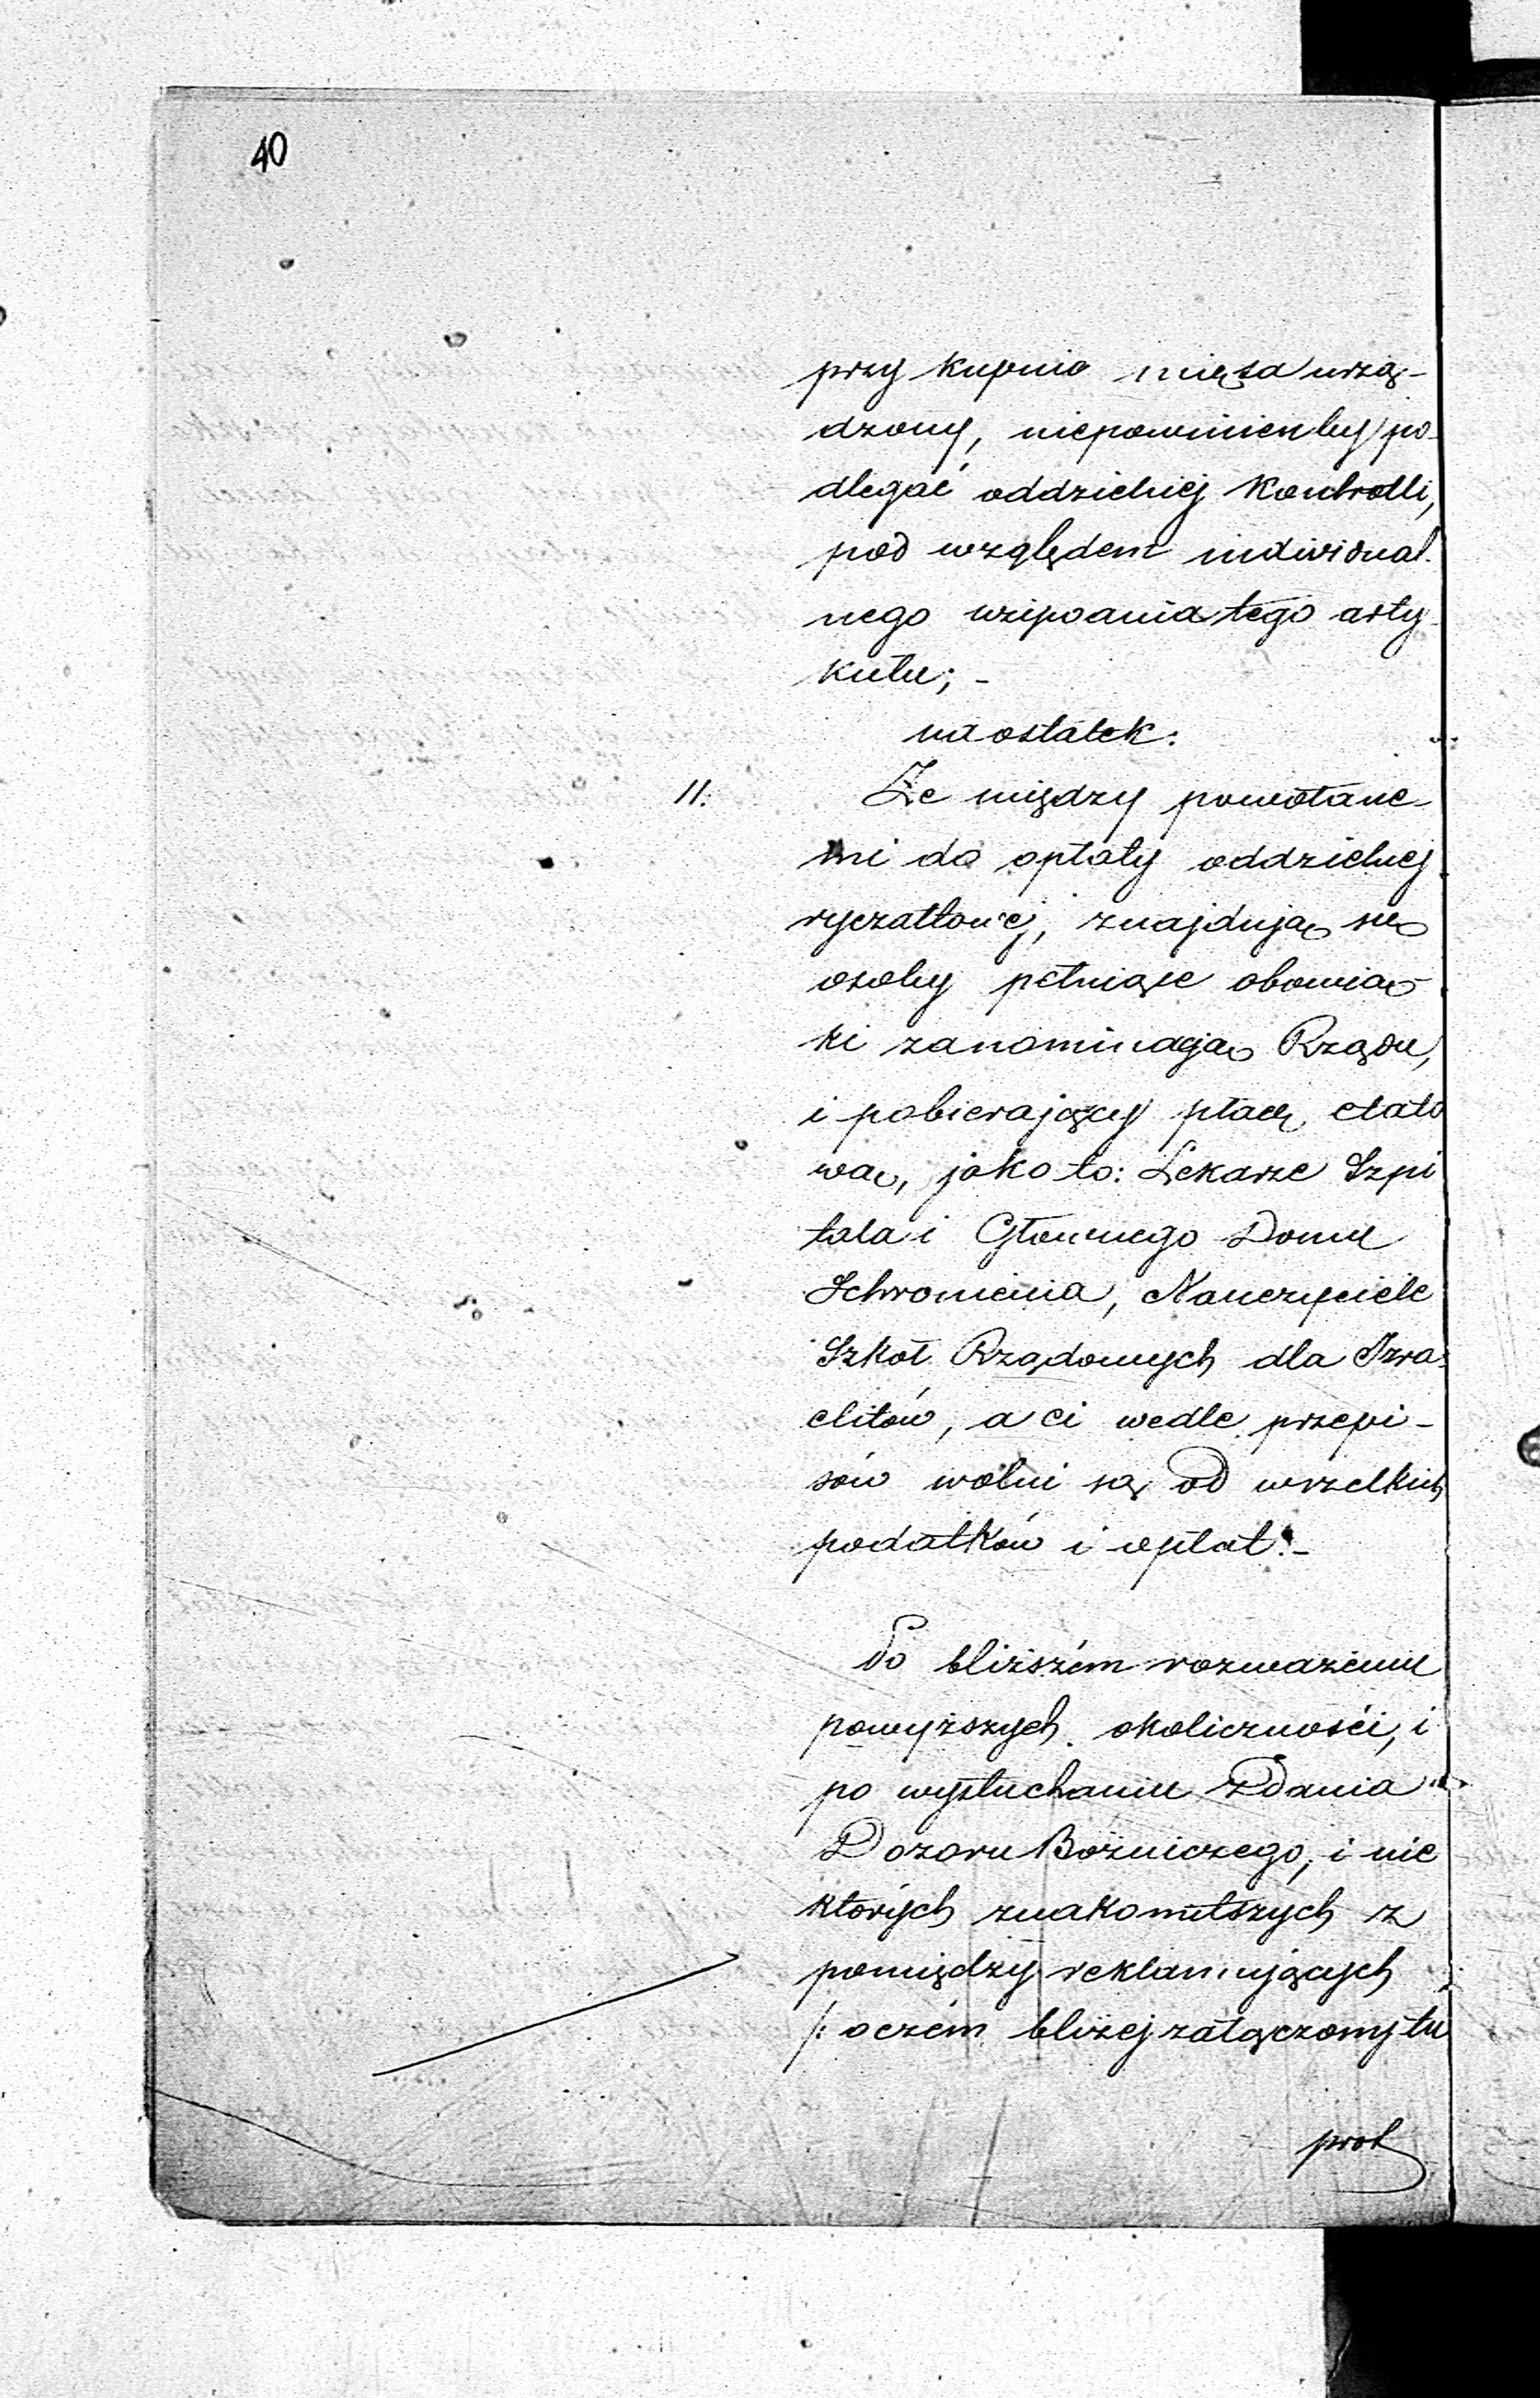 40
przy kupnie mięsa urzą-
dzony, niepowinienby po-
dlegać oddzielnej Kontrolli,
pod względem indiwidual-
nego użiwania tego arty-
kułu; -
na ostatek:
11. Że między powołane-
mi do opłaty oddzielnej
ryczałtowej, znajdują się
osoby pełniące obowiąz-
ki za nominacją Rządu,
i pobierający płacę etato
wą, jako to: Lekarze Szpi
tala i Głównego Domu
Schronienia, Nauczyciele
Szkół Rządowych dla Izra-
elitów, a ci wedle przepi-
sów wolni są od wszelkich
podatków i opłat. -
Po bliższém rozważeniu
powyższych okoliczności, i
po wysłuchaniu Zdania
Dozoru Bożniczego, i nie
których znakomitszych z
pomiędzy reklamujących
/: oczém bliżej załączony tu
prot